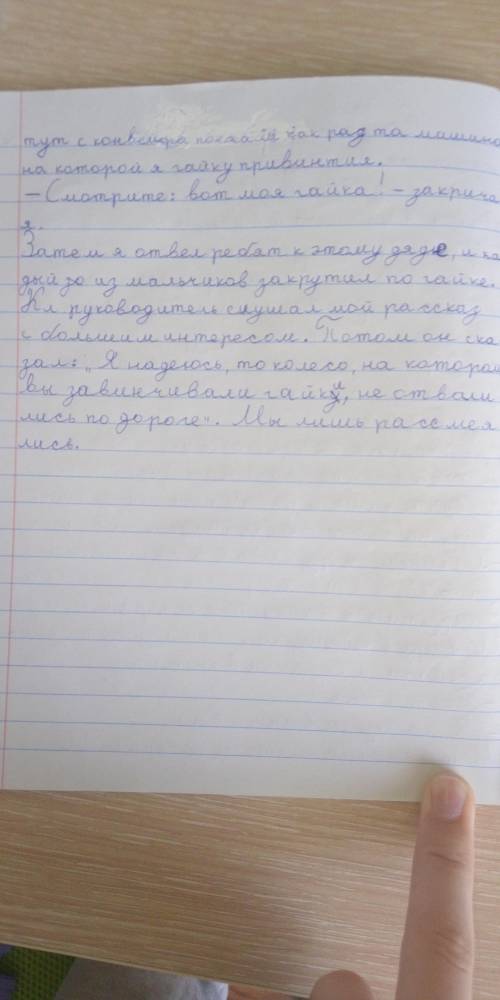 тут с конвейра поехала как раз та машина
на которой я гайку привинтил.
– Смотрите: вот моя гайка! – закрича
я.
Затем я отвел ребят к этому дяде, и ка
дый зо из мальчиков закрутил по гайке.
Кл руководитель слушал мой рассказ
с большим интересом. Потом он ска
зал: „Я надеюсь, то колесо, на котором
вы завинчивали гайки, не отвали
лись по дороге". Мы лишь рассмея
лись.